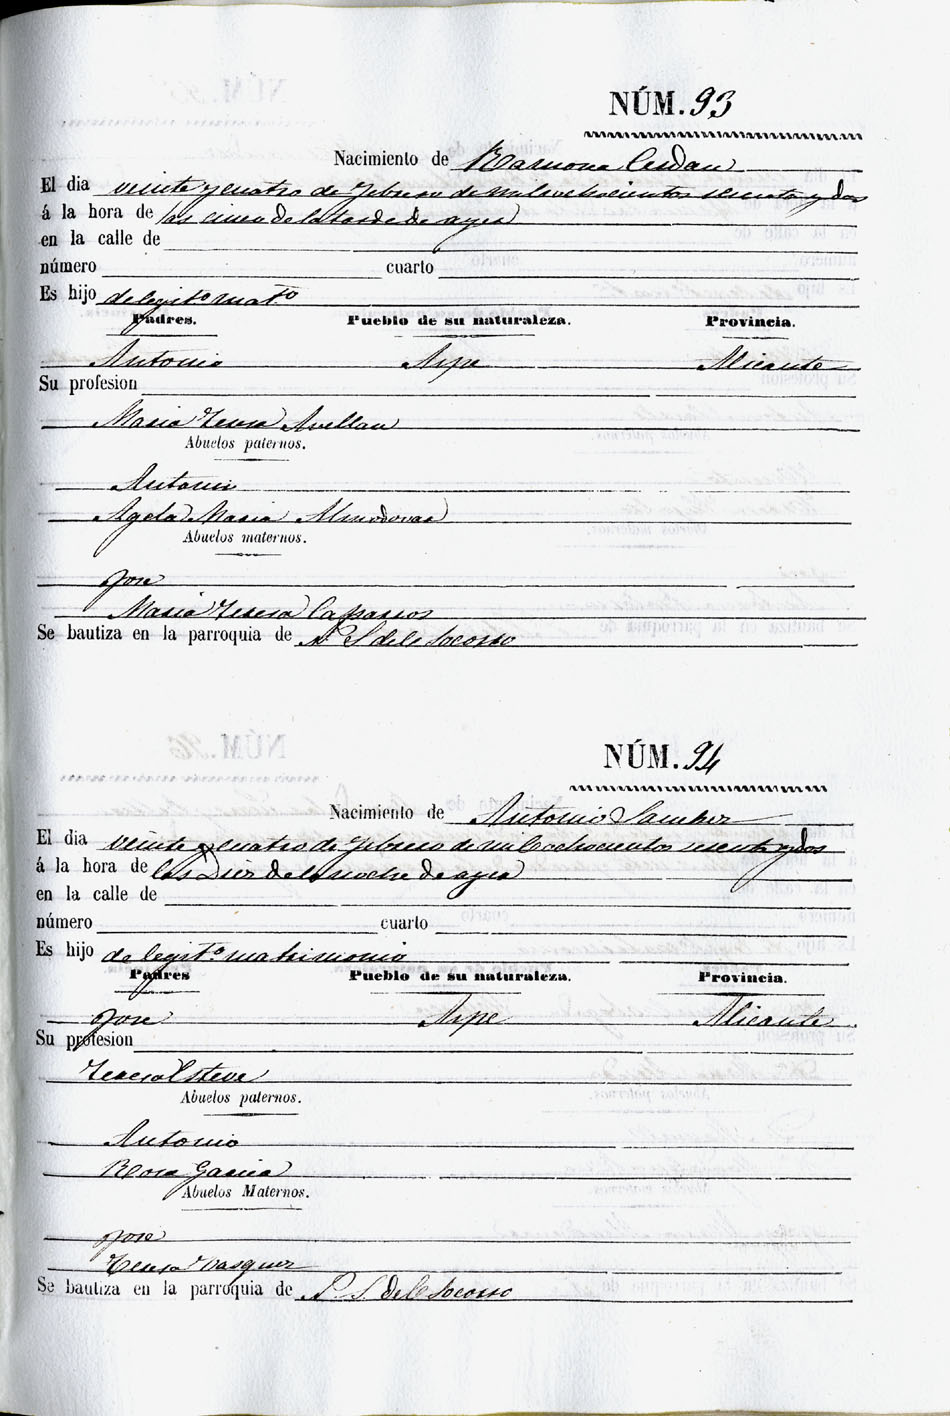 NÚM. 93
Nacimiento de Ramona Cerdan
El dia veinte y cuatro de Febrero de mil ochocientos sesenta y dos
á la hora de las cinco de la tarde de ayer
en la calle de
número cuarto
Es hijo de legito mato
Padres. Pueblo de su naturaleza. Provincia.
Antonio Aspe Alicante
Su profesion
Maria Teresa Avellan
Abuelos paternos.
Antonio
Ageda Maria Almodovar
Abuelos maternos.
Jose
Maria Teresa
Se bautiza en la parroquia de N. S. del Socorro
NÚM. 94
Nacimiento de Antonio Sanchez
El dia veinte y cuatro de Febrero de mil ochocientos sesenta y dos
á la hora de las Diez de la noche de ayer
en la calle de
número cuarto
Es hijo de legit.o matrimonio
Padres Pueblo de su naturaleza. Provincia.
Jose Aspe Alicante
Su profesion
Teresa Esteve
Abuelos paternos.
Antonio
Rosa Garcia
Abuelos Maternos.
Jose
Teresa Vasquez
Se bautiza en la parroquia de N. S. del Socorro